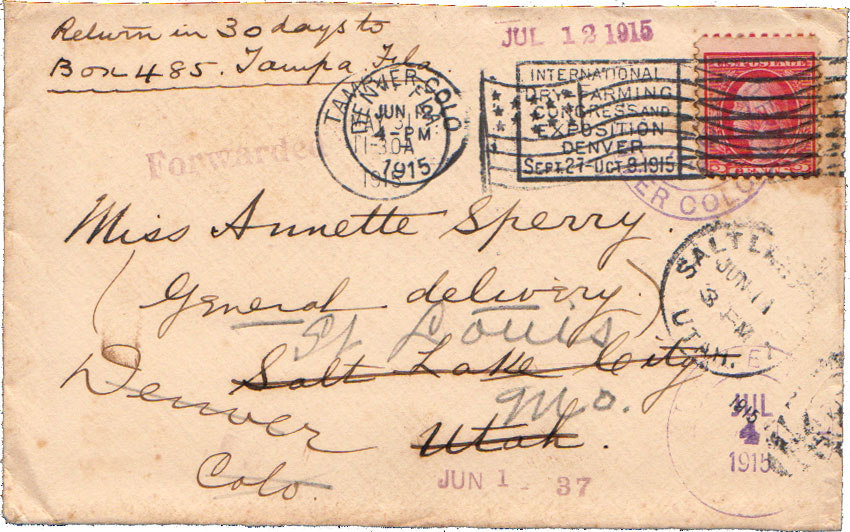 Return in 30 days to
Box 485. Tampa, Fla.
JUL 12 1915
TAMPA FLA.
MAY 31
11-30A
1915
DENVER COLO.
JUN 12
4-PM
1915
INTERNATIONAL
DRY-FARMING
CONGRESS AND
EXPOSITION
DENVER
SEPT. 27-OCT. 8. 1915
U.S. POSTAGE
2 CENTS 2
Forwarded
VER COLO
Miss Annette Sperry.
(General delivery.)
St Louis
Mo.
Salt Lake City
Utah.
Denver
Colo.
SALT LAKE
JUN 11
3 PM
UTAH.
1915
JUL
4
1915
JUN 1 37